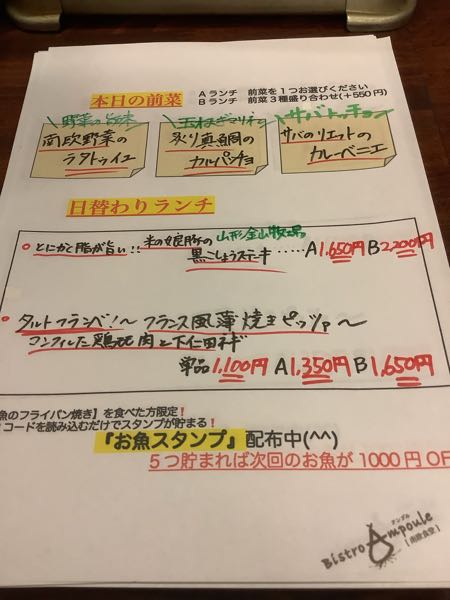 本日の前菜
Aランチ 前菜を1つお選びください
Bランチ 前菜3種盛り合わせ(+550円)
南欧野菜の
ラタトゥイユ
炙り真鯛の
カルパッチョ
サバのリエットの
カレーベニエ
日替わりランチ
とにかく脂が旨い!! 米の娘豚の 山形金山牧場
黒こしょうステーキ ‥‥‥A1,650円 B2,200円
タルトフランベ!〜フランス風薄焼きピッツァ〜
コンフィした鶏もも肉と下仁田ネギ
単品1,100円 A1,350円 B1,650円
魚のフライパン焼き】を食べた方限定!
コードを読み込むだけでスタンプが貯まる!
『お魚スタンプ』配布中(^^)
5つ貯まれば次回のお魚が1000円OF
アンプル
Bistro Ampoule
[南欧食堂]